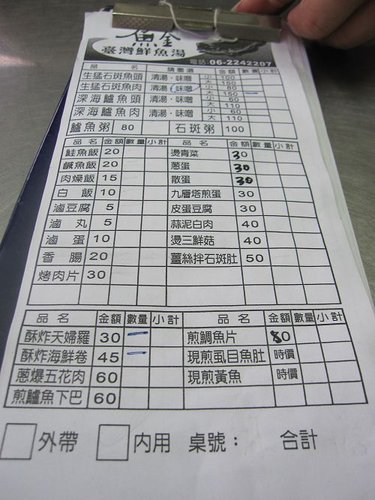 魚金
臺灣鮮魚湯
電話 06-2242207
品 名 精華湯 金額 數量 小計
生猛石斑魚頭 清湯・味噌 小
生猛石斑魚肉 清湯・味噌 小 大
深海鱸魚頭 清湯・味噌 小 大
深海鱸魚肉 清湯・味噌 小 60 大 110
鱸魚粥 80 石斑粥 100
品名 金額 數量 小計 品 名 金額 數量 小計
鮭魚飯 20 燙青菜 30
鹹魚飯 20 蔥蛋 30
肉燥飯 15 散蛋 30
白 飯 10 九層塔煎蛋 30
滷豆腐 5 皮蛋豆腐 30
滷 丸 5 蒜泥白肉 40
滷 蛋 10 燙三鮮菇 40
香 腸 20 薑絲拌石斑肚 50
烤肉片 30
品 名 金額 數量 小計 品 名 金額 數量 小計
酥炸天婦羅 30 煎鯛魚片 80
酥炸海鮮卷 45 現煎虱目魚肚 時價
蔥爆五花肉 60 現煎黃魚 時價
煎鱸魚下巴 60
外帶 內用 桌號： 合計